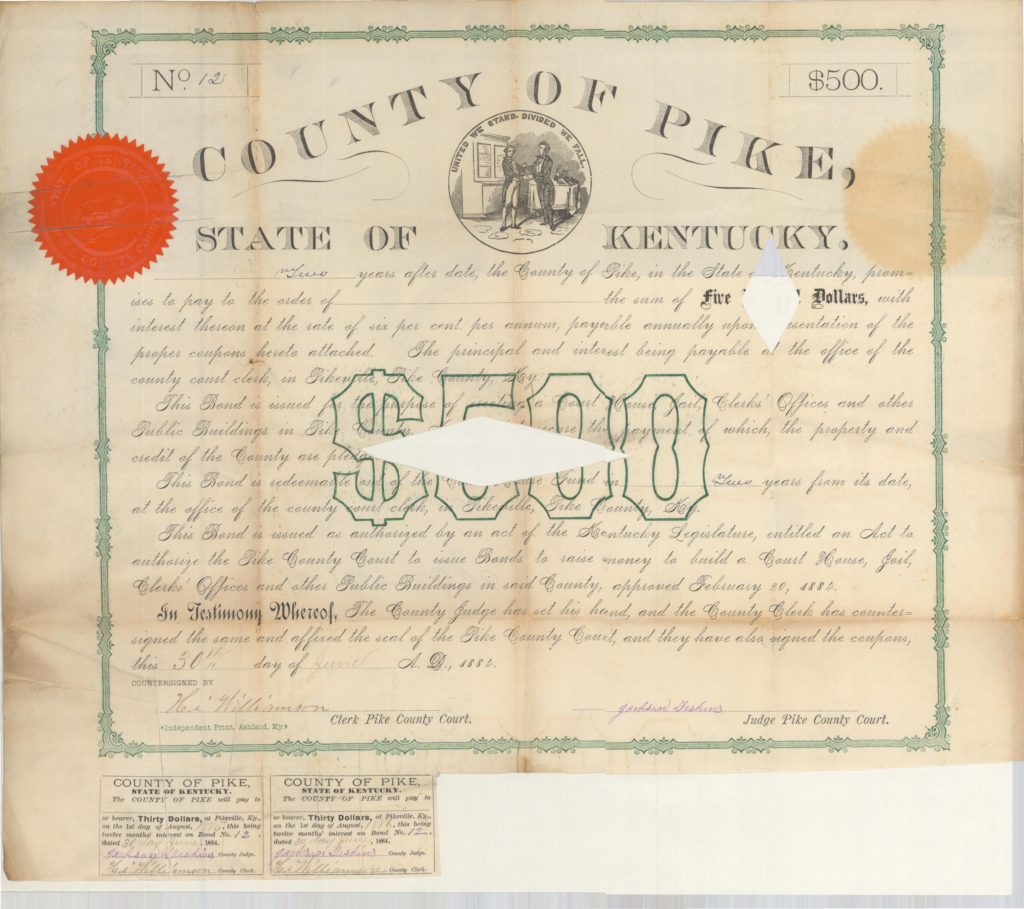 No. 12
$500.
COUNTY OF PIKE,
UNITED WE STAND - DIVIDED WE FALL.
STATE OF KENTUCKY,
Two years after date, the County of Pike, in the State Kentucky, prom=
ises to pay to the order of the sum of Five Dollars, with
interest thereon at the rate of six per cent. per annum, payable annually upon esentation of the
proper coupons hereto attached. The principal and interest being payable at the office of the
county court clerk, in Pikeville, Pike County, Ky.
This Bond is issued for the purpose of erecting a Court House, Jail, Clerks' Offices and other
Public Buildings in Pike County, the payment of which, the property and
credit of the County are
This Bond is redeemable out of the Fund in Two years from its date,
at the office of the county court clerk, in Pikeville, Pike County, Ky.
$500
This Bond is issued as authorized by an act of the Kentucky Legislature, entitled an Act to
authorize the Pike County Court to issue Bonds to raise money to build a Court House, Jail,
Clerks' Offices and other Public Buildings in said County, approved February 20, 1884.
In Testimony Whereof, The County Judge has set his hand, and the County Clerk has counter=
signed the same and affixed the seal of the Pike County Court, and they have also signed the coupons,
this 30th day of June A. D., 1884.
COUNTERSIGNED BY
Williamson
Jackson Deskins
Clerk Pike County Court.
Judge Pike County Court.
*Independent Print, Ashland, Ky.*
COUNTY OF PIKE,
STATE OF KENTUCKY.
The COUNTY OF PIKE will pay to
or bearer, Thirty Dollars, at Pikeville, Ky.,
on the 1st day of August, this being
twelve months' interest on Bond No. 12.
dated 30 day June, 1884.
Jackson Deskins County Judge.
Williamson County Clerk.
COUNTY OF PIKE,
STATE OF KENTUCKY.
The COUNTY OF PIKE will pay to
or bearer, Thirty Dollars, at Pikeville, Ky.,
on the 1st day of August, 1886, this being
twelve months' interest on Bond No. 12.
dated 30 day June, 1884.
Jackson Deskins County Judge.
Williamson County Clerk.